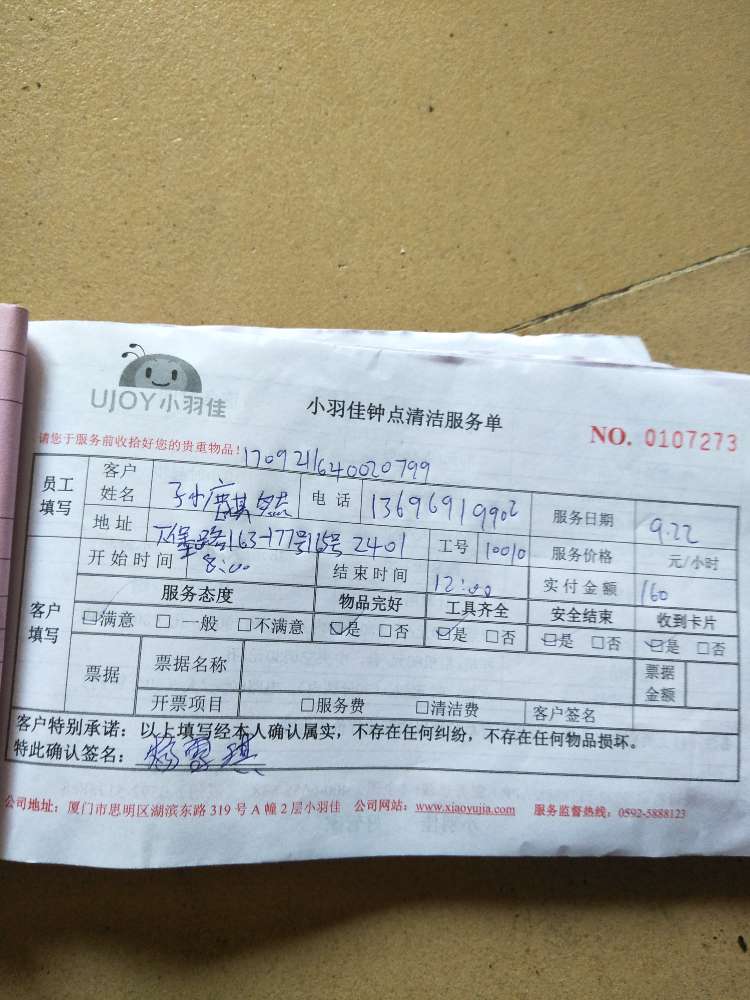 UJOY小羽佳
小羽佳钟点清洁服务单
NO. 0107273
请您于服务前收拾好您的贵重物品！
170921640020799
员工填写 客户姓名 电话 13696919902 服务日期 9.22
地址 163-177号 2401 工号 10010 服务价格 元/小时
开始时间 8:00 结束时间 12:00 实付金额 160
客户填写 服务态度 物品完好 工具齐全 安全结束 收到卡片
满意 一般 不满意 是 否 是 否 是 否 是 否
票据 票据名称 票据金额
开票项目 服务费 清洁费 客户签名
客户特别承诺：以上填写经本人确认属实，不存在任何纠纷，不存在任何物品损坏。
特此确认签名：
公司地址：厦门市思明区湖滨东路 319 号 A 幢 2 层小羽佳 公司网站：www.xiaoyujia.com 服务监督热线：0592-5888123